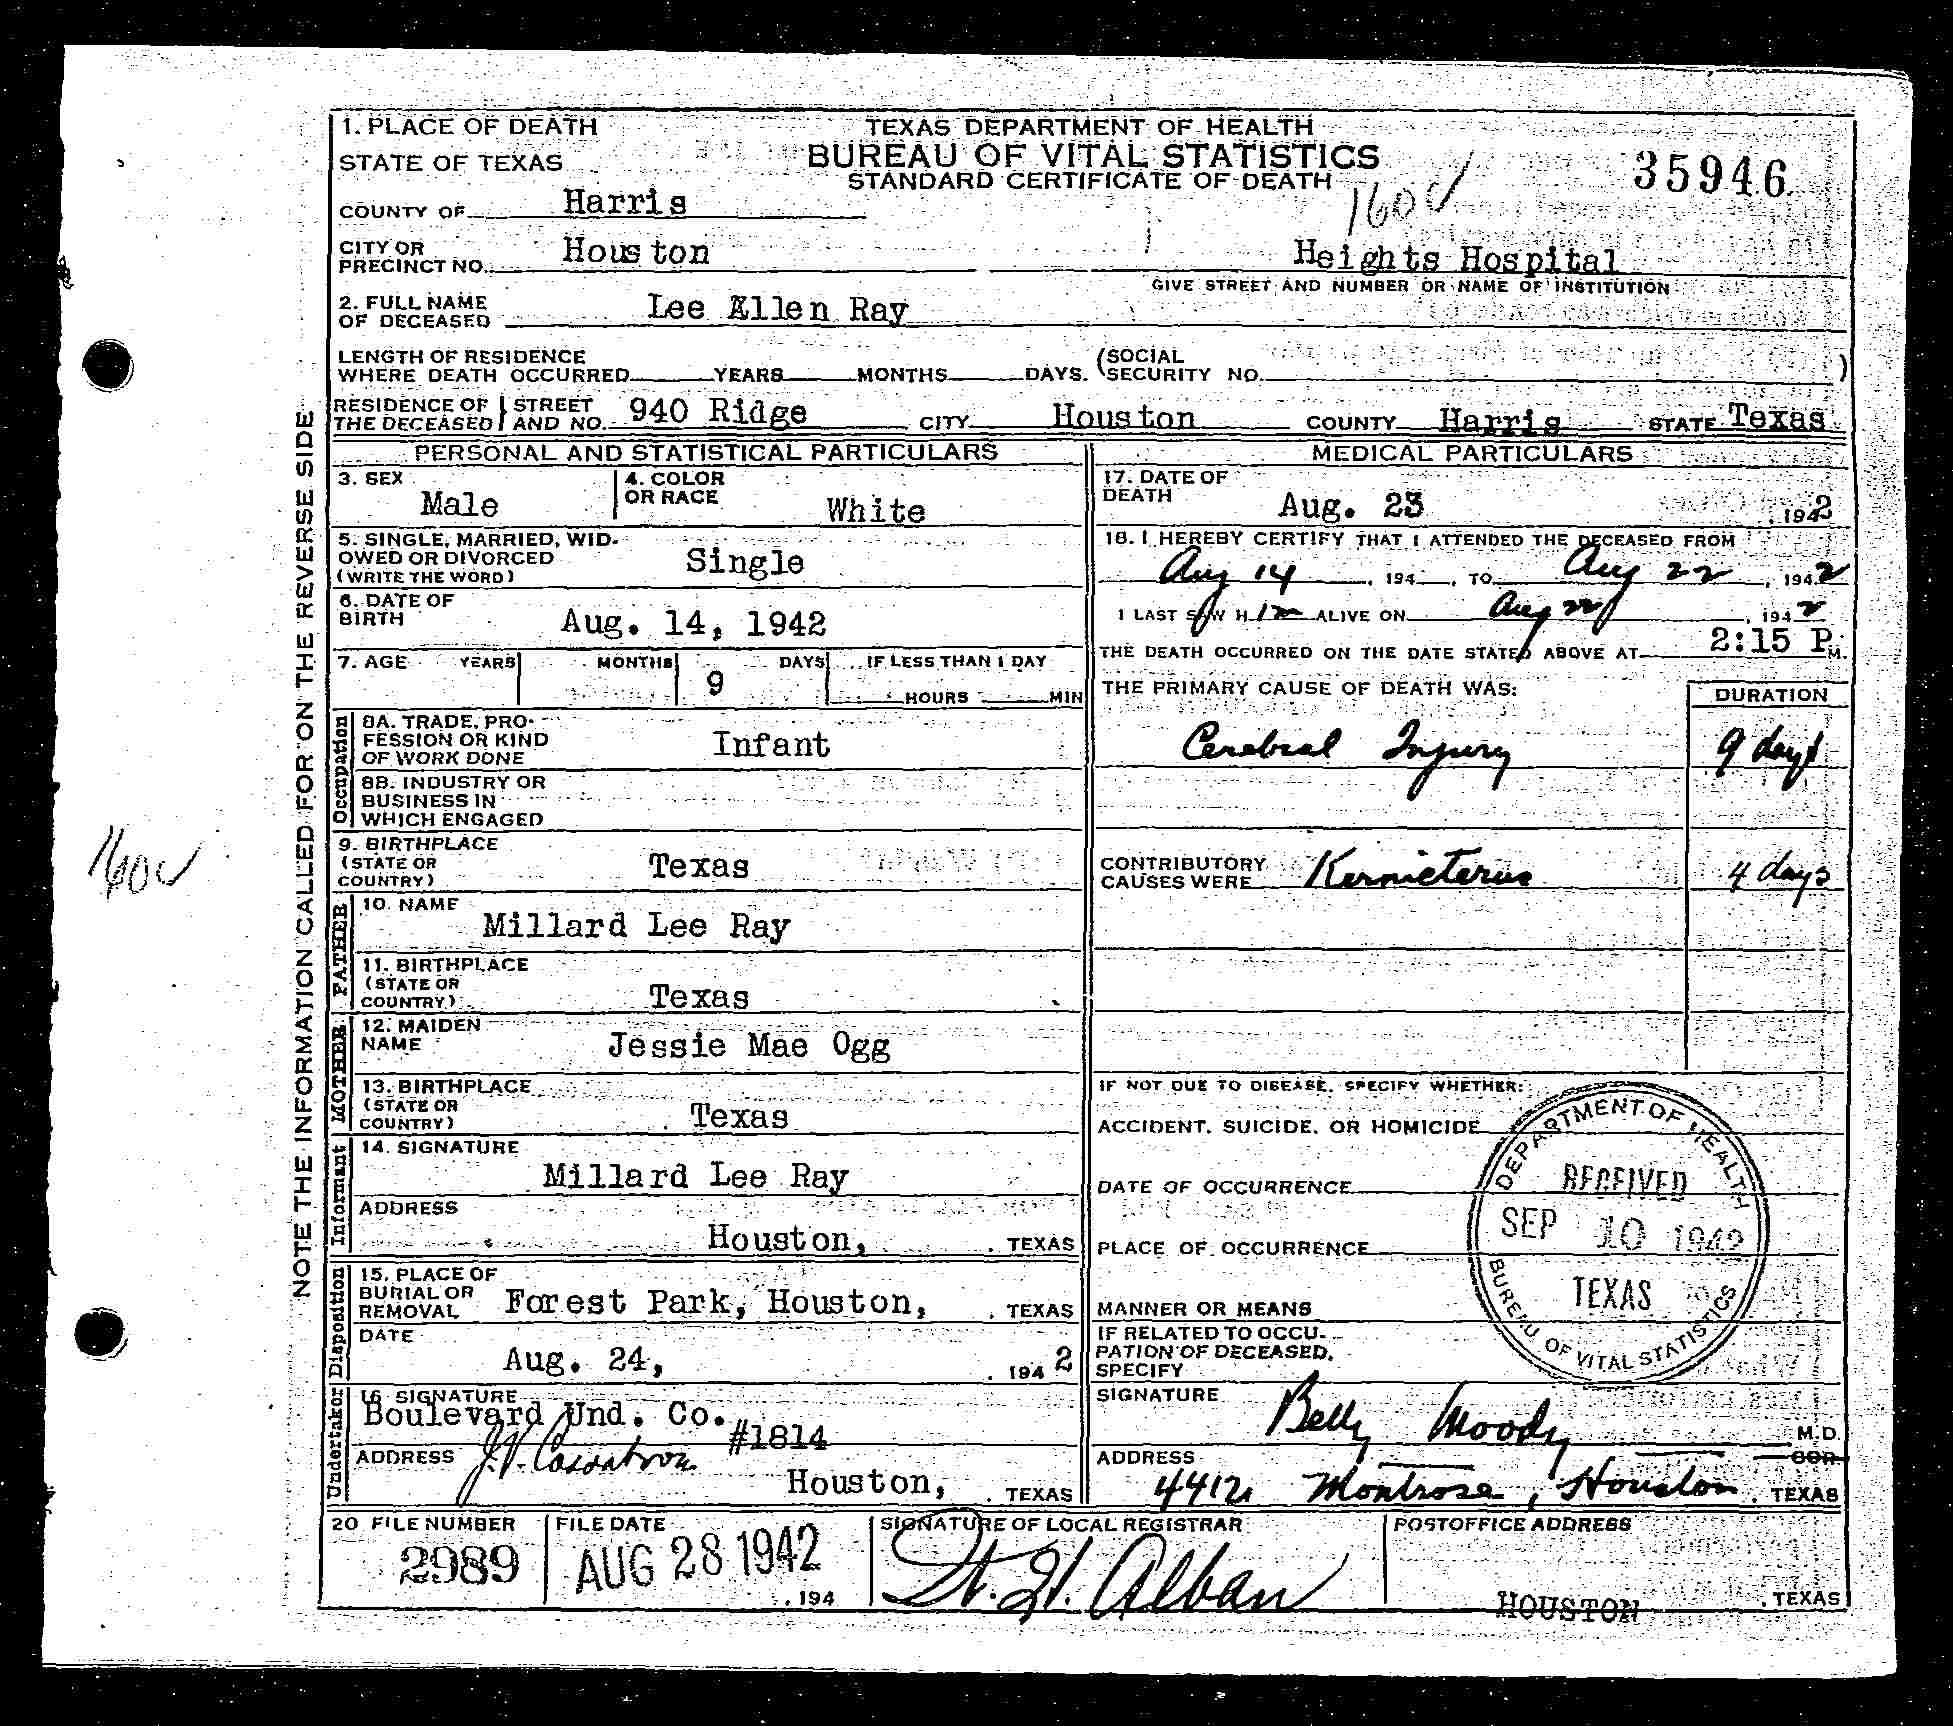 1. PLACE OF DEATH
TEXAS DEPARTMENT OF HEALTH
STATE OF TEXAS
BUREAU OF VITAL STATISTICS
35946
STANDARD CERTIFICATE OF DEATH
160
COUNTY OF Harris
CITY OR PRECINCT NO. Houston
Heights Hospital
GIVE STREET AND NUMBER OR NAME OF INSTITUTION
2. FULL NAME OF DECEASED Lee Allen Ray
LENGTH OF RESIDENCE WHERE DEATH OCCURRED YEARS MONTHS DAYS. (SOCIAL SECURITY NO. )
RESIDENCE OF THE DECEASED STREET AND NO. 940 Ridge CITY Houston COUNTY Harris STATE Texas
NOTE THE INFORMATION CALLED FOR ON THE REVERSE SIDE
160
PERSONAL AND STATISTICAL PARTICULARS
3. SEX Male
4. COLOR OR RACE White
5. SINGLE, MARRIED, WIDOWED OR DIVORCED (WRITE THE WORD) Single
6. DATE OF BIRTH Aug. 14, 1942
7. AGE YEARS MONTHS 9 DAYS IF LESS THAN 1 DAY HOURS MIN
Occupation
8A. TRADE, PROFESSION OR KIND OF WORK DONE Infant
8B. INDUSTRY OR BUSINESS IN WHICH ENGAGED
9. BIRTHPLACE (STATE OR COUNTRY) Texas
FATHER
10. NAME Millard Lee Ray
11. BIRTHPLACE (STATE OR COUNTRY) Texas
MOTHER
12. MAIDEN NAME Jessie Mae Ogg
13. BIRTHPLACE (STATE OR COUNTRY) Texas
Informant
14. SIGNATURE Millard Lee Ray
ADDRESS Houston, TEXAS
Disposition
15. PLACE OF BURIAL OR REMOVAL Forest Park, Houston, TEXAS
DATE Aug. 24, 1942
Undertaker
16 SIGNATURE
Boulevard Und. Co. #1814
ADDRESS Houston, TEXAS
MEDICAL PARTICULARS
17. DATE OF DEATH Aug. 23 1942
18. I HEREBY CERTIFY THAT I ATTENDED THE DECEASED FROM
Aug 14, 194 , TO Aug 22, 1942
I LAST SAW HIM ALIVE ON Aug 22, 1942
THE DEATH OCCURRED ON THE DATE STATED ABOVE AT 2:15 P M.
THE PRIMARY CAUSE OF DEATH WAS: DURATION
Cerebral Injury 9 days
CONTRIBUTORY CAUSES WERE Kernicterus 4 days
IF NOT DUE TO DISEASE, SPECIFY WHETHER:
ACCIDENT, SUICIDE, OR HOMICIDE
DATE OF OCCURRENCE
PLACE OF OCCURRENCE
MANNER OR MEANS
IF RELATED TO OCCUPATION OF DECEASED, SPECIFY
DEPARTMENT OF HEALTH
RECEIVED
SEP 10 1942
TEXAS
BUREAU OF VITAL STATISTICS
SIGNATURE Betty Moody M.D.
COR.
ADDRESS 4412 Montrose, Houston, TEXAS
20 FILE NUMBER 2989
FILE DATE AUG 28 1942 , 194
SIGNATURE OF LOCAL REGISTRAR Alban
POSTOFFICE ADDRESS HOUSTON, TEXAS